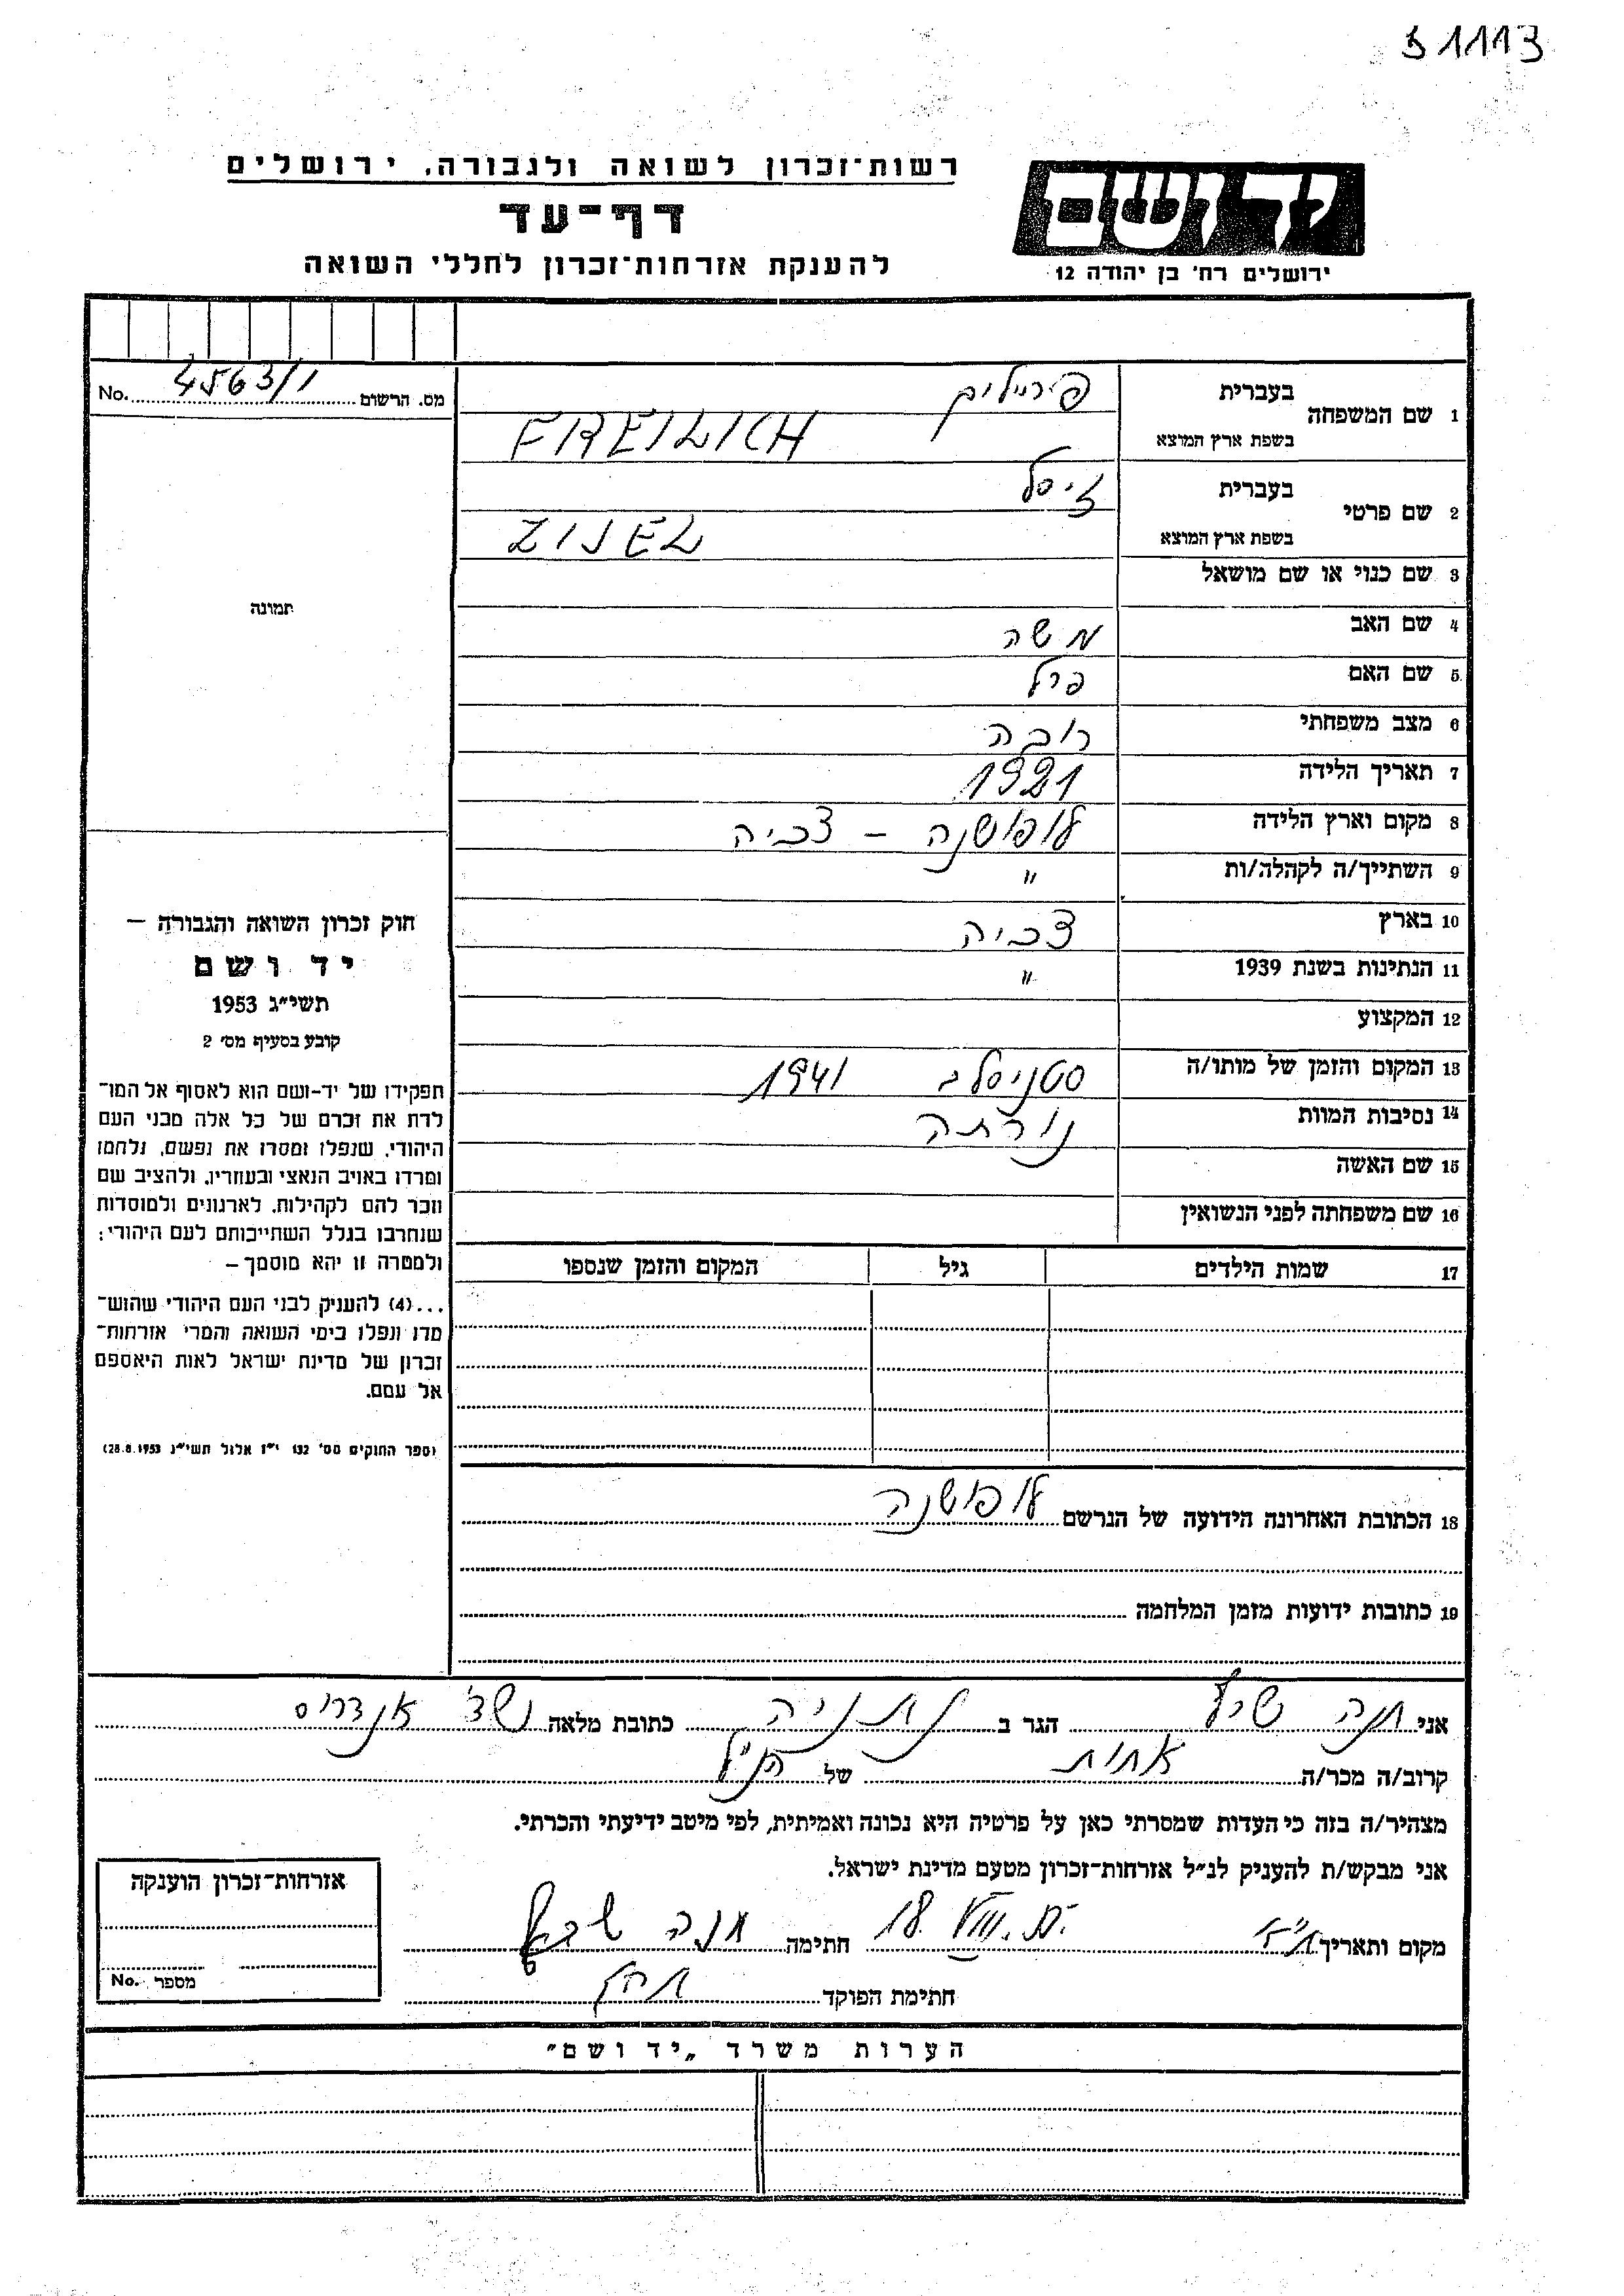 31113
רשות-זכרון לשואה ולגבורה, ירושלים
דף-עד
להענקת אזרחות-זכרון לחללי השואה
יד ושם
ירושלים רח' בן יהודה 12
מס. הרשום 4563/1 No.
1 שם המשפחה
בעברית פריילים
בשפת ארץ המוצא FREILICH
2 שם פרטי
בעברית זיסל
בשפת ארץ המוצא ZISEL
3 שם כנוי או שם מושאל
4 שם האב משה
5 שם האם פרל
6 מצב משפחתי רובה
7 תאריך הלידה 1921
8 מקום וארץ הלידה לופושנה – צכיה
9 השתייך/ה לקהלה/ות "
10 בארץ צכיה
11 הנתינות בשנת 1939 "
12 המקצוע
13 המקום והזמן של מותו/ה סטניסלב 1941
14 נסיבות המוות נורתה
15 שם האשה
16 שם משפחתה לפני הנשואין
17 שמות הילדים גיל המקום והזמן שנספו
18 הכתובת האחרונה הידועה של הנרשם לופושנה
19 כתובות ידועות מזמן המלחמה
תמונה
חוק זכרון השואה והגבורה –
יד ושם
תשי"ג 1953
קובע בסעיף מס' 2
תפקידו של יד-ושם הוא לאסוף אל המו-
לדת את זכרם של כל אלה מבני העם
היהודי, שנפלו ומסרו את נפשם, נלחמו
ומרדו באויב הנאצי ובעוזריו, ולהציב שם
וזכר להם לקהילות, לארגונים ולמוסדות
שנחרבו בגלל השתייכותם לעם היהודי;
ולמטרה זו יהא מוסמך –
...(4) להעניק לבני העם היהודי שהוש-
מדו ונפלו בימי השואה והמרי אזרחות-
זכרון של מדינת ישראל לאות היאספם
אל עמם.
(ספר החוקים מס' 132 י"ז אלול תשי"ג 28.8.1953)
אני חנה הגר ב נתניה כתובת מלאה
קרוב/ה מכר/ה אחות של הנ"ל
מצהיר/ה בזה כי העדות שמסרתי כאן על פרטיה היא נכונה ואמיתית, לפי מיטב ידיעתי והכרתי.
אני מבקש/ת להעניק לנ"ל אזרחות-זכרון מטעם מדינת ישראל.
מקום ותאריך 18. VIII. חתימה חנה
חתימת הפוקד
אזרחות-זכרון הוענקה
מספר No.
הערות משרד „יד ושם"